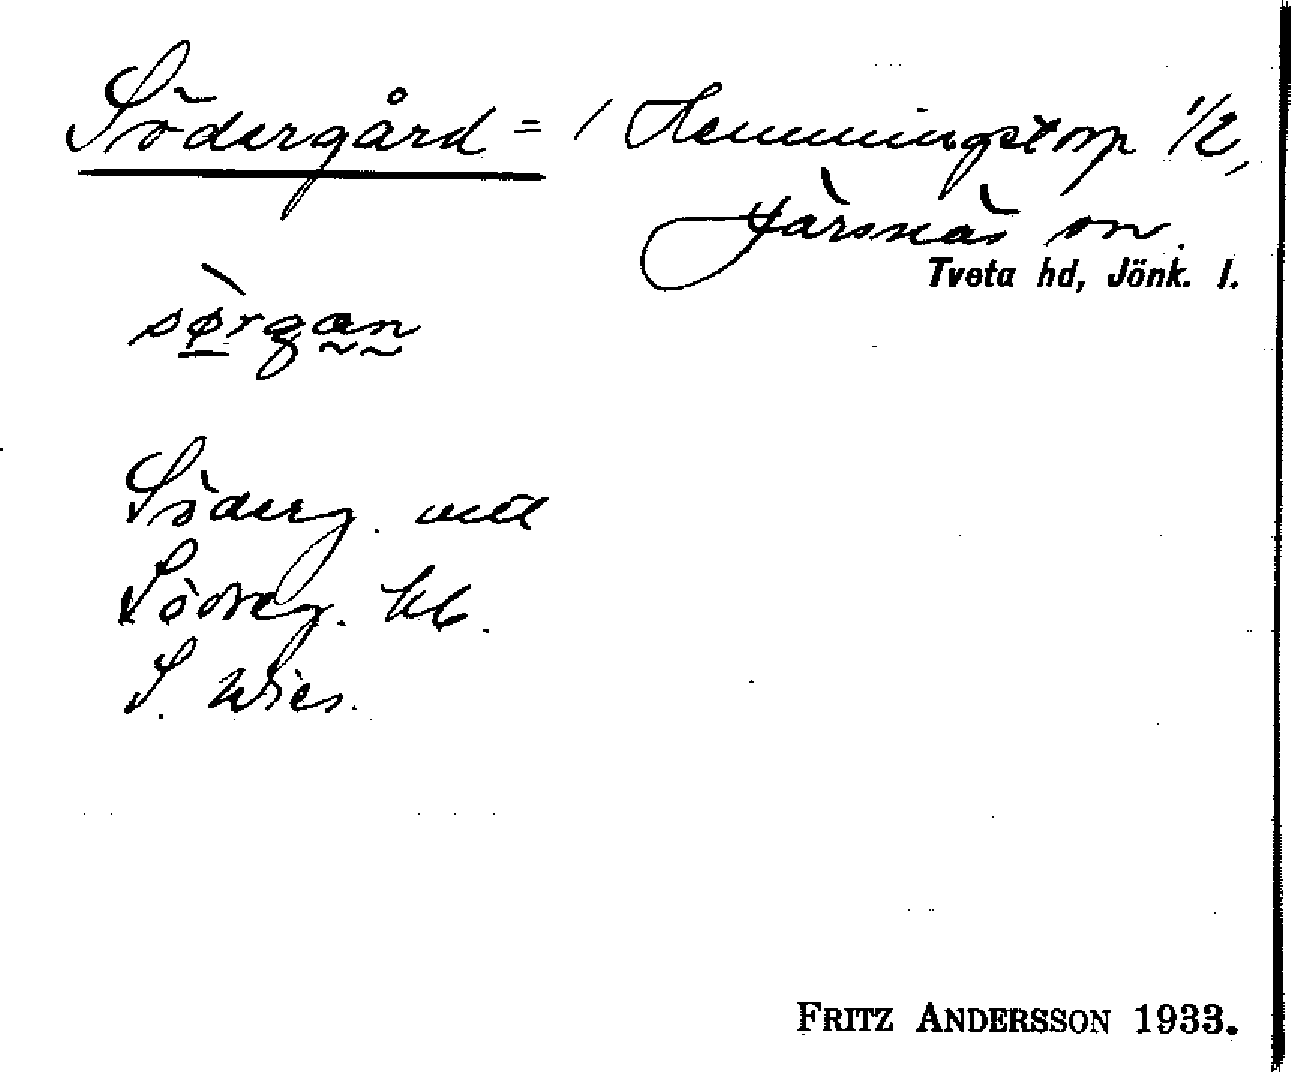 Södergård = / Hemmingstorp 1/2,
Järsnäs sn.
Tveta hd, Jönk. l.
sørgan
Söderg.
Söderg. kb.
S. Wies.
FRITZ ANDERSSON 1933.